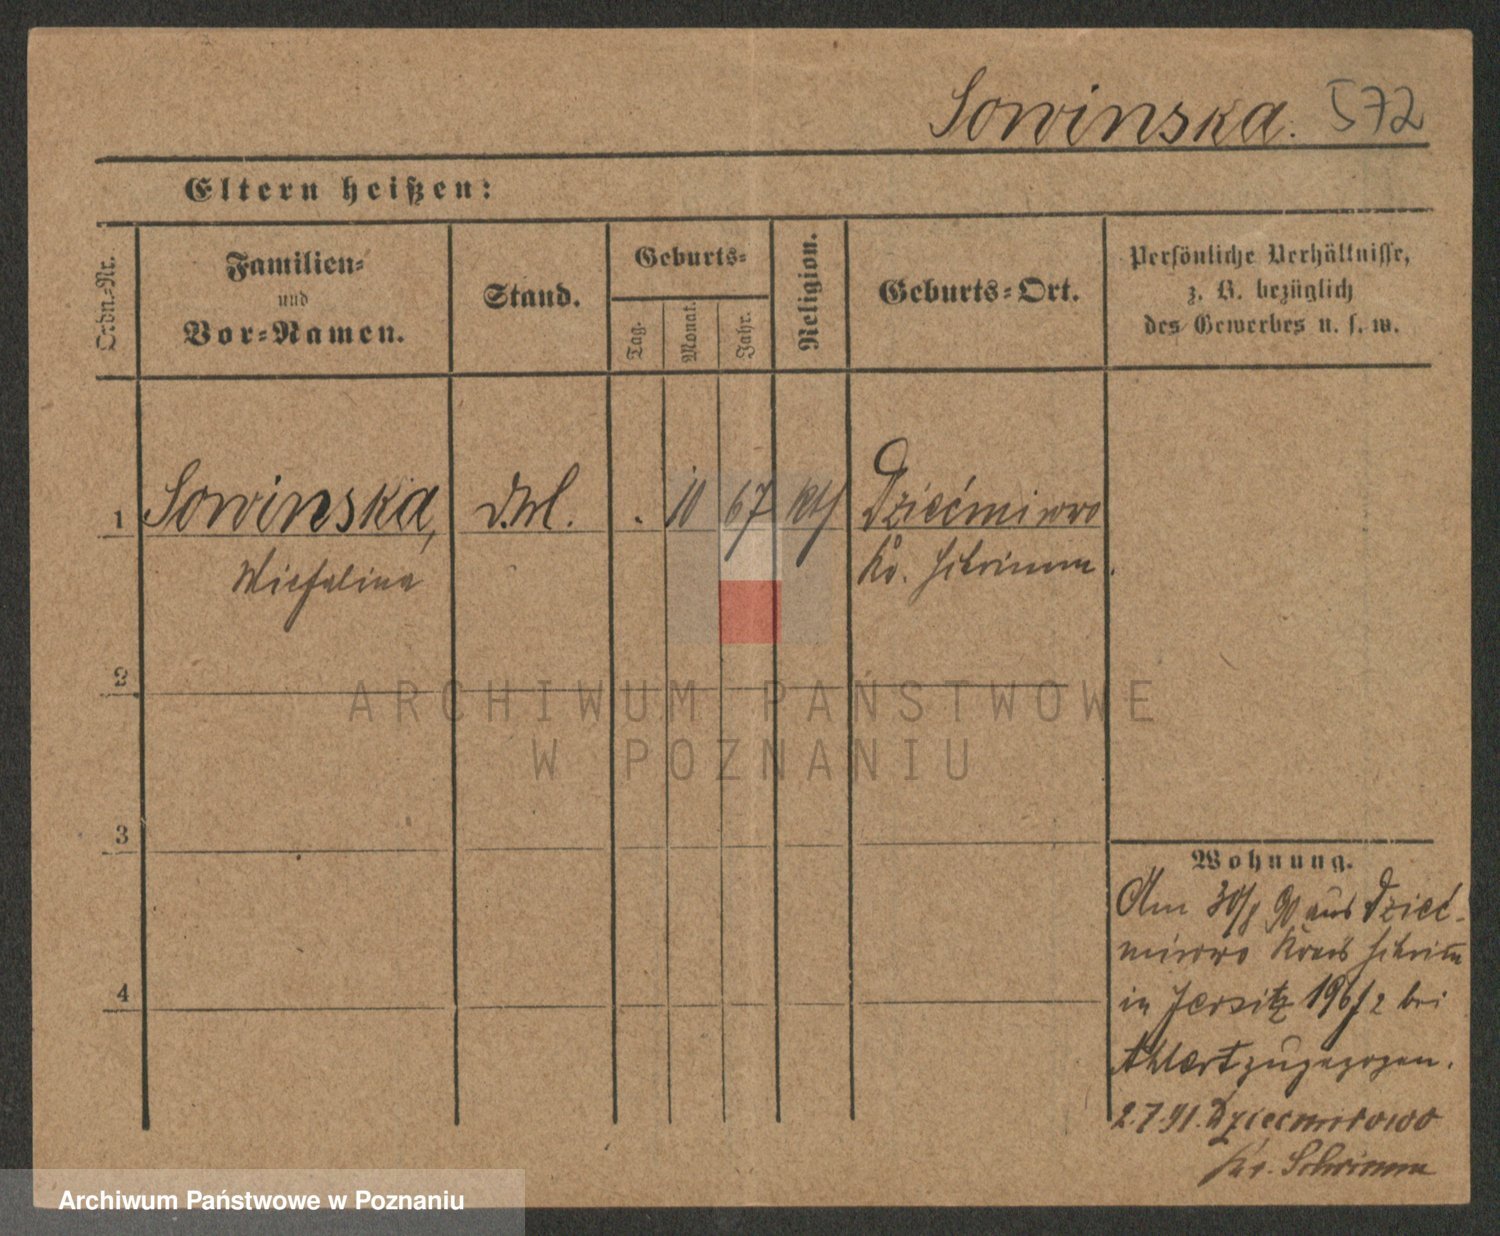 Sowinska. 572
Eltern heißen:
Ordn.-Nr.
Familien-
und
Vor-Namen.
Stand.
Geburts-
Tag.
Monat.
Jahr.
Religion.
Geburts-Ort.
Persönliche Verhältnisse,
z. B. bezüglich
des Gewerbes u. s. w.
1 Sowinska, . 10 67 kth Dziećmirowo
Kr. Schrimm.
2
3
4
Wohnung.
Am 90 aus Dzieć-
mirowo Kreis Schrim
in Jersitz 196/2 bei
zugezogen.
2.7.91. Dziecmirowo
Kr. Schrimm
ARCHIWUM PAŃSTWOWE
W POZNANIU
Archiwum Państwowe w Poznaniu